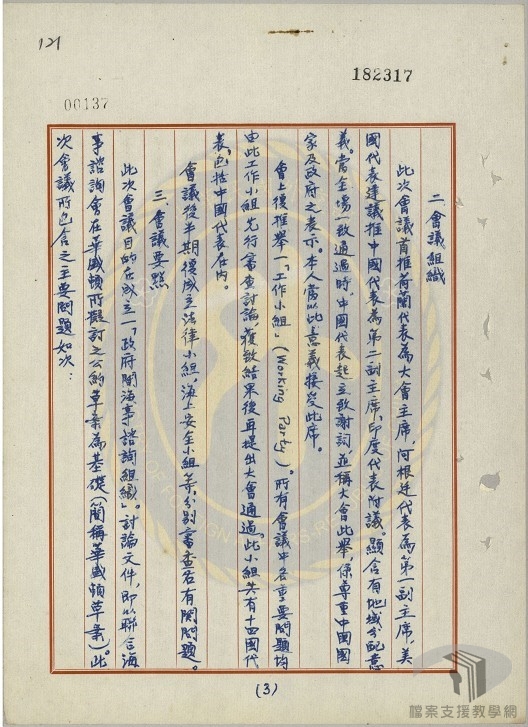 121
182317
00137
二、會議組織
此次會議首推荷蘭代表為大會主席，阿根廷代表為第一副主席，美
國代表建議推中國代表為第二副主席，印度代表附議。顯含有地域分配意
義。當全場一致通過時，中國代表起立致謝詞，並稱大會此舉，係尊重中國國
家及政府之表示。本人當以此意義接受此席。
會上復推舉一「工作小組」(Working Party)。所有會議中各重要問題均
由此工作小組先行審查討論，獲致結果後再提出大會通過。此小組共有十四國代
表，包括中國代表在內。
會議後半期復成立法律小組，海上安全小組等，分別審查各有關問題。
三、會議要點
此次會議目的在成立一「政府間海事諮詢組織」。討論文件，即以聯合海
事諮詢會在華盛頓所擬訂之公約草案為基礎(簡稱華盛頓草案)。此
次會議所包含之主要問題如次：
(3)
檔案支援教學網